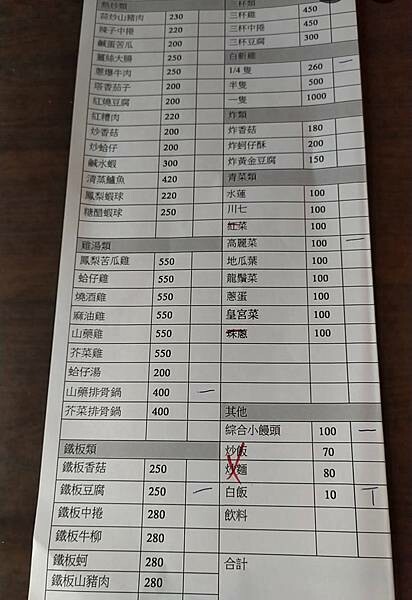 熱炒類
蒜炒山豬肉 230
辣子中捲 220
鹹蛋苦瓜 200
薑絲大腸 250
蔥爆牛肉 250
塔香茄子 200
紅燒豆腐 200
紅糟肉 220
炒香菇 200
炒蛤仔 200
鹹水蝦 300
清蒸鱸魚 420
鳳梨蝦球 220
糖醋蝦球 250
雞湯類
鳳梨苦瓜雞 550
蛤仔雞 550
燒酒雞 550
麻油雞 550
山藥雞 550
芥菜雞 550
蛤仔湯 200
山藥排骨鍋 400 一
芥菜排骨鍋 400
鐵板類
鐵板香菇 250
鐵板豆腐 250 一
鐵板中捲 280
鐵板牛柳 280
鐵板蚵 280
鐵板山豬肉 280
三杯類
三杯雞 450
三杯中捲 450
三杯豆腐 300
白斬雞
1/4 隻 260 一
半隻 500
一隻 1000
炸類
炸香菇 180
炸蚵仔酥 200
炸黃金豆腐 150
青菜類
水蓮 100
川七 100
紅菜 100
高麗菜 100 一
地瓜葉 100
龍鬚菜 100
蔥蛋 100
皇宮菜 100
珠蔥 100
其他
綜合小饅頭 100 一
炒飯 70
炒麵 80
白飯 10 丅
飲料
合計